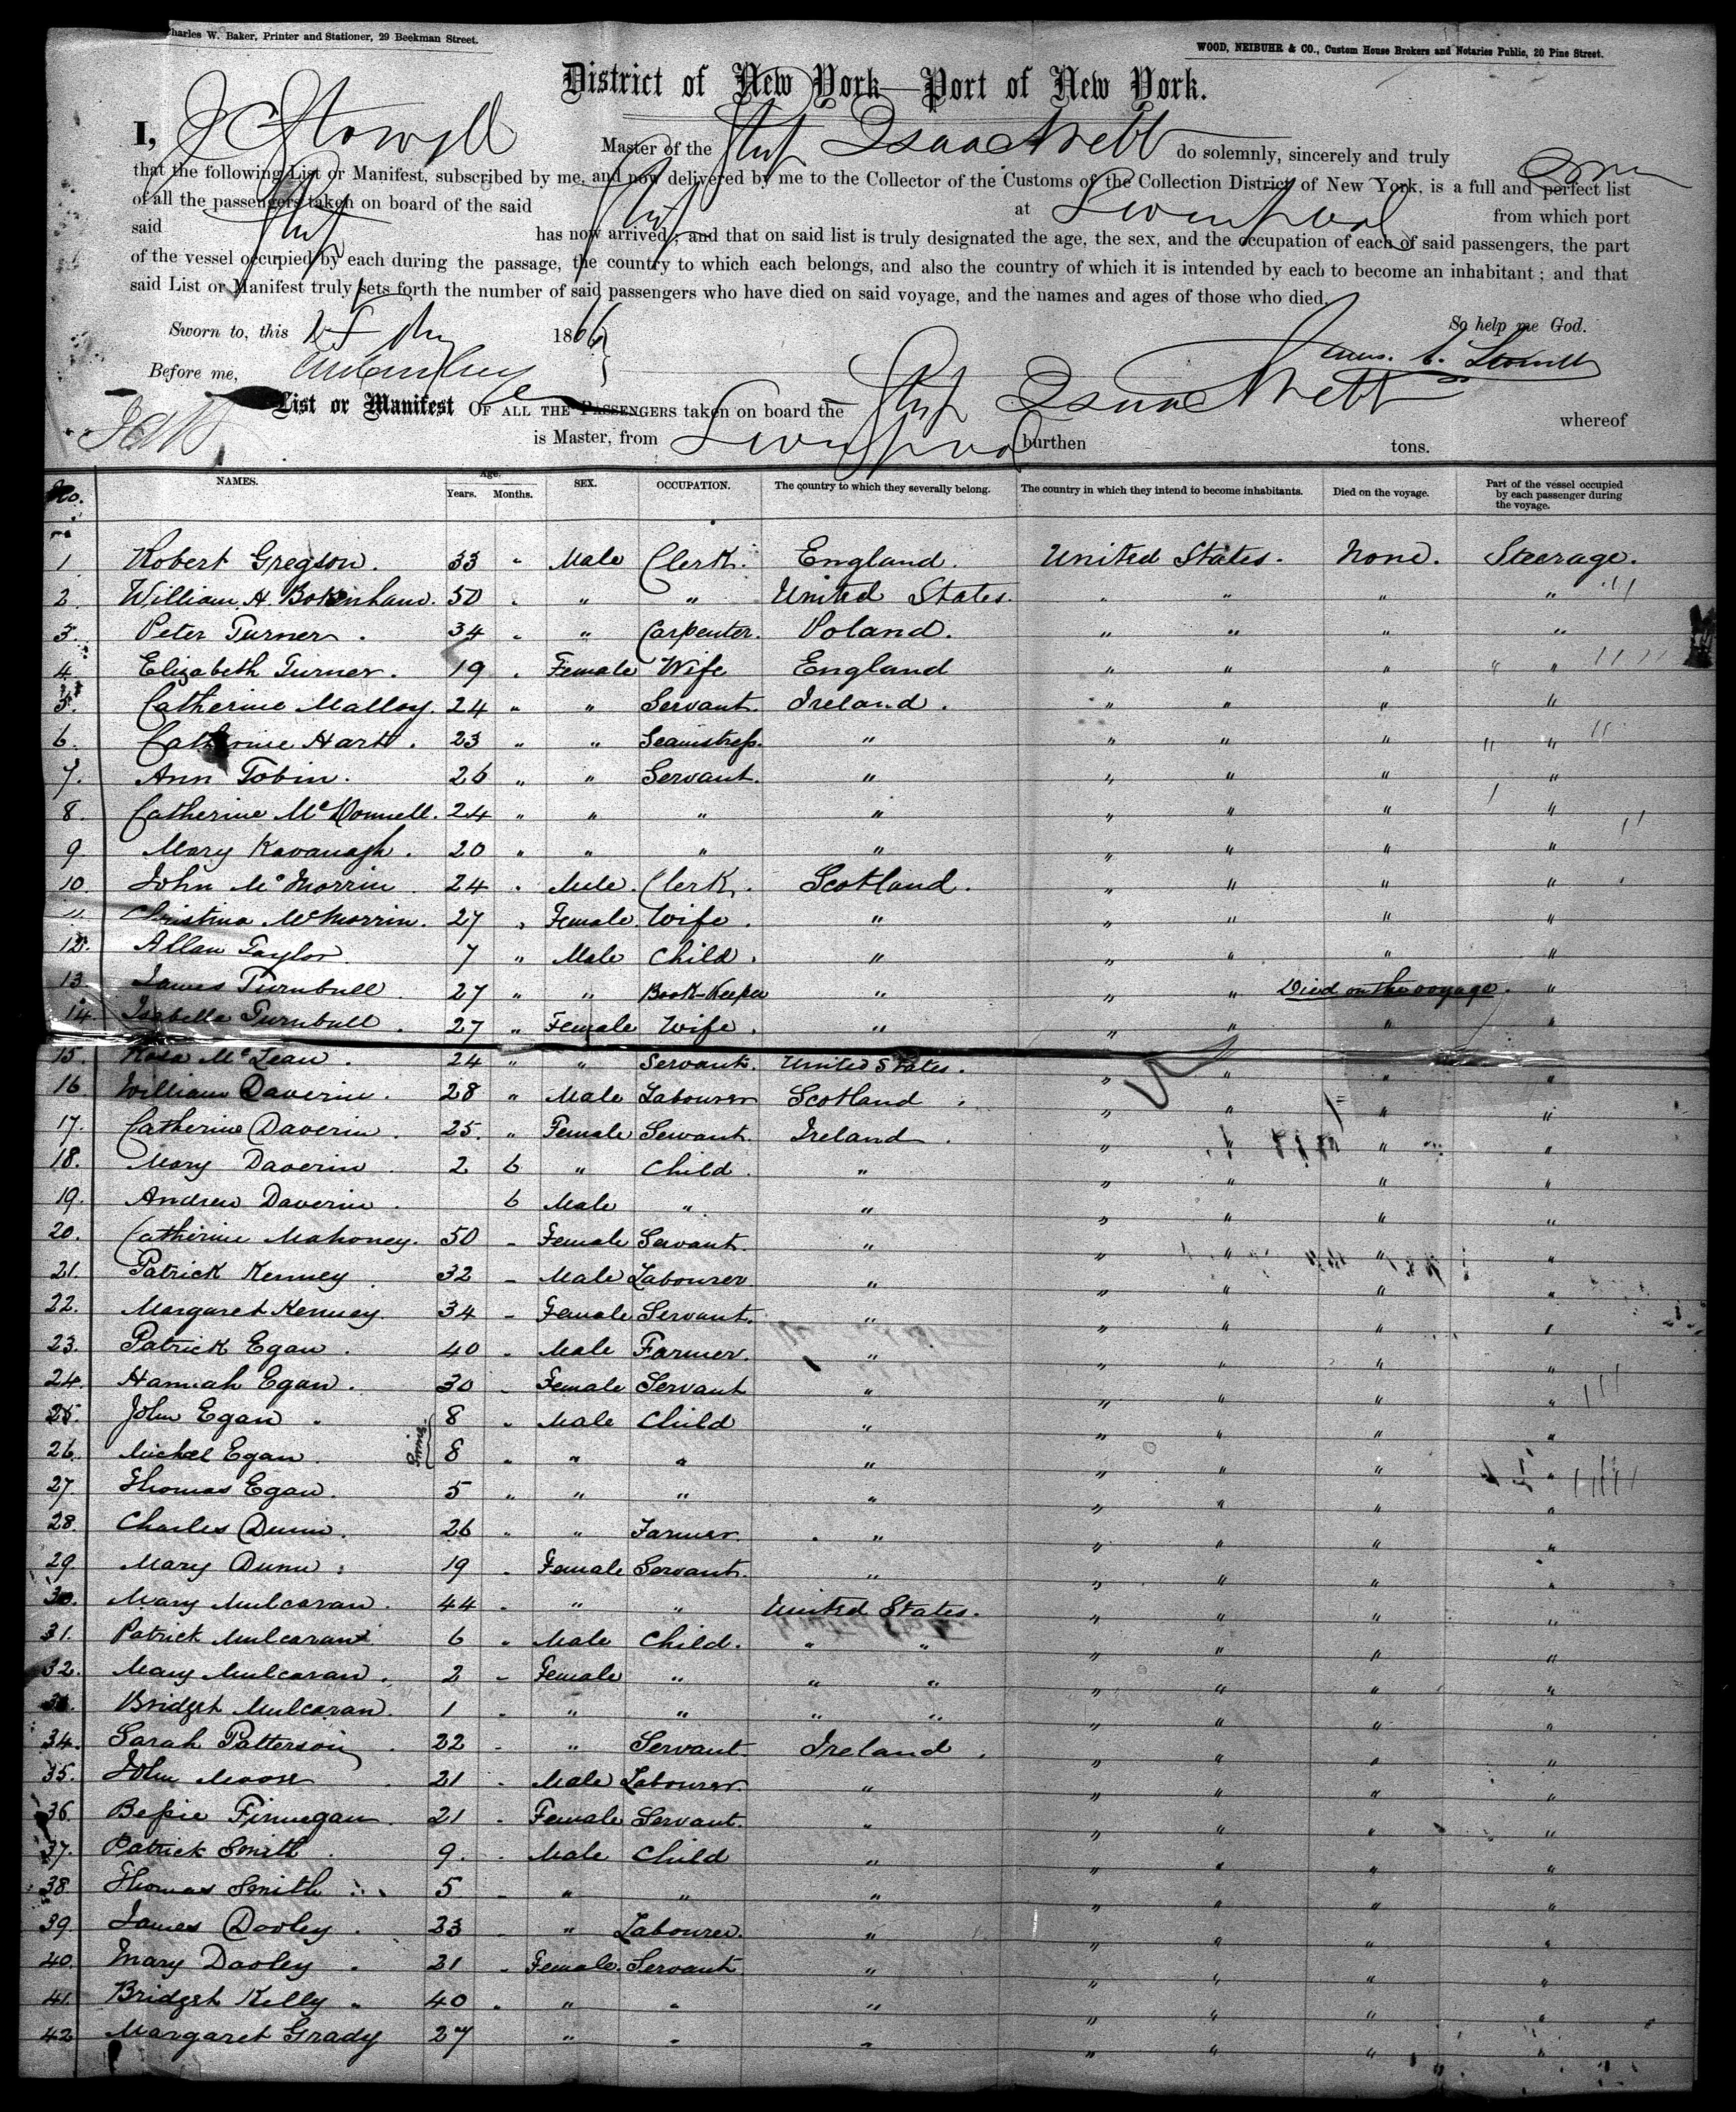 Charles W. Baker, Printer and Stationer, 29 Beekman Street.
WOOD, NEIBUHR & CO., Custom House Brokers and Notaries Public, 20 Pine Street.
District of New York—Port of New York.
I, J C Stowell Master of the Ship Isaac Webb do solemnly, sincerely and truly
that the following List or Manifest, subscribed by me, and now delivered by me to the Collector of the Customs of the Collection District of New York, is a full and perfect list
of all the passengers taken on board of the said Ship at Liverpool from which port
said Ship has now arrived; and that on said list is truly designated the age, the sex, and the occupation of each of said passengers, the part
of the vessel occupied by each during the passage, the country to which each belongs, and also the country of which it is intended by each to become an inhabitant; and that
said List or Manifest truly sets forth the number of said passengers who have died on said voyage, and the names and ages of those who died.
Sworn to, this 1866 So help me God.
Before me, C. Stowell
List or Manifest OF ALL THE PASSENGERS taken on board the Ship Isaac Webb whereof
is Master, from Liverpool burthen tons.
No. NAMES. Age. Years. Months. SEX. OCCUPATION. The country to which they severally belong. The country in which they intend to become inhabitants. Died on the voyage. Part of the vessel occupied by each passenger during the voyage.
1 Robert Gregson. 33 " Male Clerk. England. United States. None. Steerage.
2. William H. Bokenham. 50 " " " United States. " " " "
3. Peter Turner. 34 " " Carpenter. Poland. " " " "
4 Elizabeth Turner. 19 " Female Wife England " " " "
5. Catherine Malloy. 24 " " Servant. Ireland. " " " "
6. Catherine Hart. 23 " " Seamstress. " " " " "
7. Ann Tobin. 26 " " Servant. " " " " "
8. Catherine McDonnell. 24 " " " " " " " "
9. Mary Kavanagh. 20 " " " " " " " "
10. John McMorrin 24 " Male. Clerk. Scotland. " " " "
11 Christina McMorrin. 27 " Female. Wife. " " " " "
12. Allan Taylor 7 " Male Child. " " " " "
13. James Turnbull. 27 " " Book-Keeper " " " Died on the voyage. "
14. Isabella Turnbull. 27 " Female Wife. " " " " "
15. Rosa McLean. 24 " " Servant. United States. " " " "
16 William Daverin. 28 " Male Labourer Scotland. " " " "
17. Catherine Daverin. 25. " Female Servant. Ireland. " " " "
18. Mary Daverin. 2 6 " Child. " " " " "
19. Andrew Daverin. 6 Male " " " " " "
20. Catherine Mahoney. 50 " Female Servant. " " " " "
21. Patrick Kenney. 32 " Male Labourer " " " " "
22. Margaret Kenney. 34 " Female Servant. " " " " "
23. Patrick Egan. 40 " Male Farmer. " " " " "
24. Hannah Egan. 30 " Female Servant " " " " "
25. John Egan. Twins. 8 " Male Child " " " " "
26. Michael Egan. 8 " " " " " " " "
27. Thomas Egan. 5 " " " " " " " "
28. Charles Dunn. 26 " " Farmer " " " " "
29. Mary Dunn. 19 " Female Servant. " " " " "
30. Mary Mulcaran. 44 " " " United States. " " " "
31. Patrick Mulcaran 6 " Male Child. " " " " " "
32. Mary Mulcaran. 2 " Female " " " " " " "
33. Bridget Mulcaran. 1 " " " " " " " " "
34. Sarah Patterson. 22 " " Servant. Ireland. " " " "
35. John Moore 21 " Male Labourer. " " " " "
36 Bessie Finnegan. 21 " Female Servant. " " " " "
37. Patrick Smith. 9. " Male Child " " " " "
38. Thomas Smith 5 " " " " " " " "
39. James Dooley. 23 " " Labourer. " " " " "
40. Mary Dooley. 21 " Female. Servant. " " " " "
41. Bridget Kelly. 40 " " " " " " " "
42 Margaret Grady 27 " " " " " " "